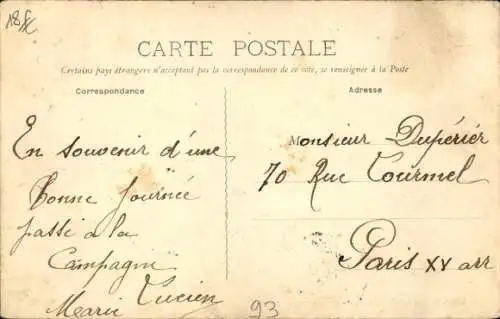 18f
CARTE POSTALE
Certains pays étrangers n'acceptant pas la correspondance de ce côté, se renseigner à la Poste
Correspondance
Adresse
En souvenir d'une
bonne journée
passé a la
Campagni
Marie Lucien
Monsieur Dupérier
70 Rue Tourmel
Paris XV arr
93